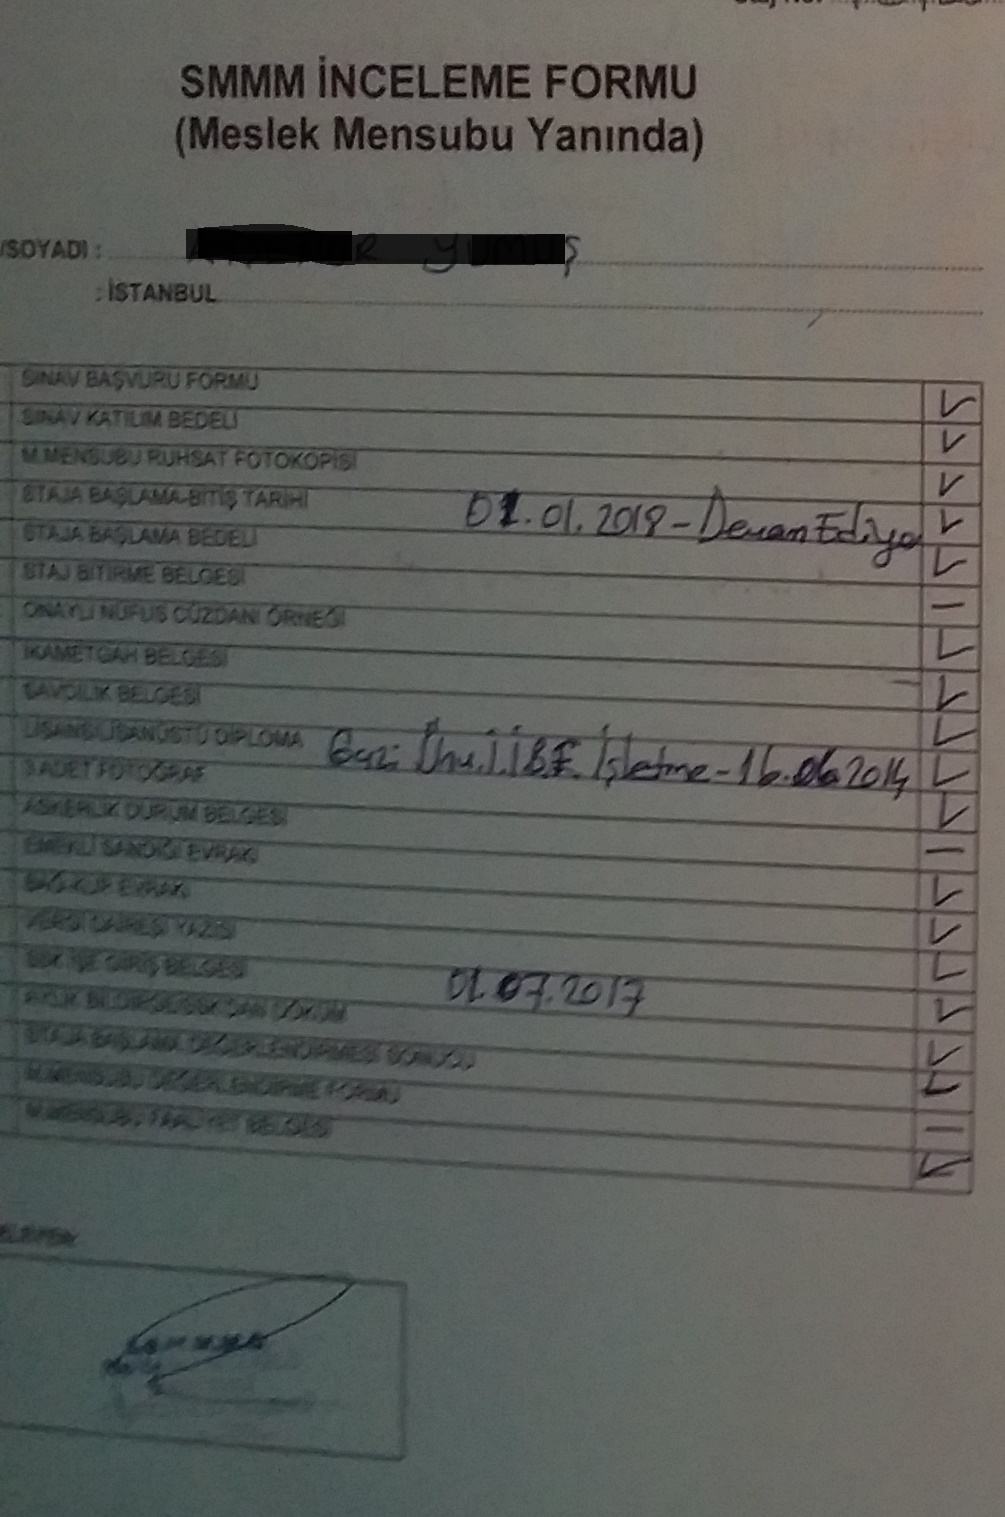 SMMM İNCELEME FORMU
(Meslek Mensubu Yanında)
/SOYADI :
: İSTANBUL
SINAV BAŞVURU FORMU
SINAV KATILIM BEDELİ
M.MENSUBU RUHSAT FOTOKOPİSİ
STAJA BAŞLAMA-BİTİŞ TARİHİ 01.01.2018 - Devam Ediyo
STAJA BAŞLAMA BEDELİ
STAJ BİTİRME BELGESİ
ONAYLI NÜFUS CÜZDANI ÖRNEĞİ
İKAMETGAH BELGESİ
SAVCILIK BELGESİ
LİSANS/LİSANÜSTÜ DİPLOMA Gazi Ünv. İ.İ.B.F. İşletme - 16.06.2014
3 ADET FOTOĞRAF
ASKERLİK DURUM BELGESİ
EMEKLİ SANDIĞI EVRAKI
BAĞ-KUR EVRAKI
VERGİ DAİRESİ YAZISI
SSK İŞE GİRİŞ BELGESİ 01.07.2017
STAJA BAŞLAMA DEĞERLENDİRMESİ SONUCU
M.MENSUBU DEĞERLENDİRME FORMU
M.MENSUBU FAALİYET BELGESİ